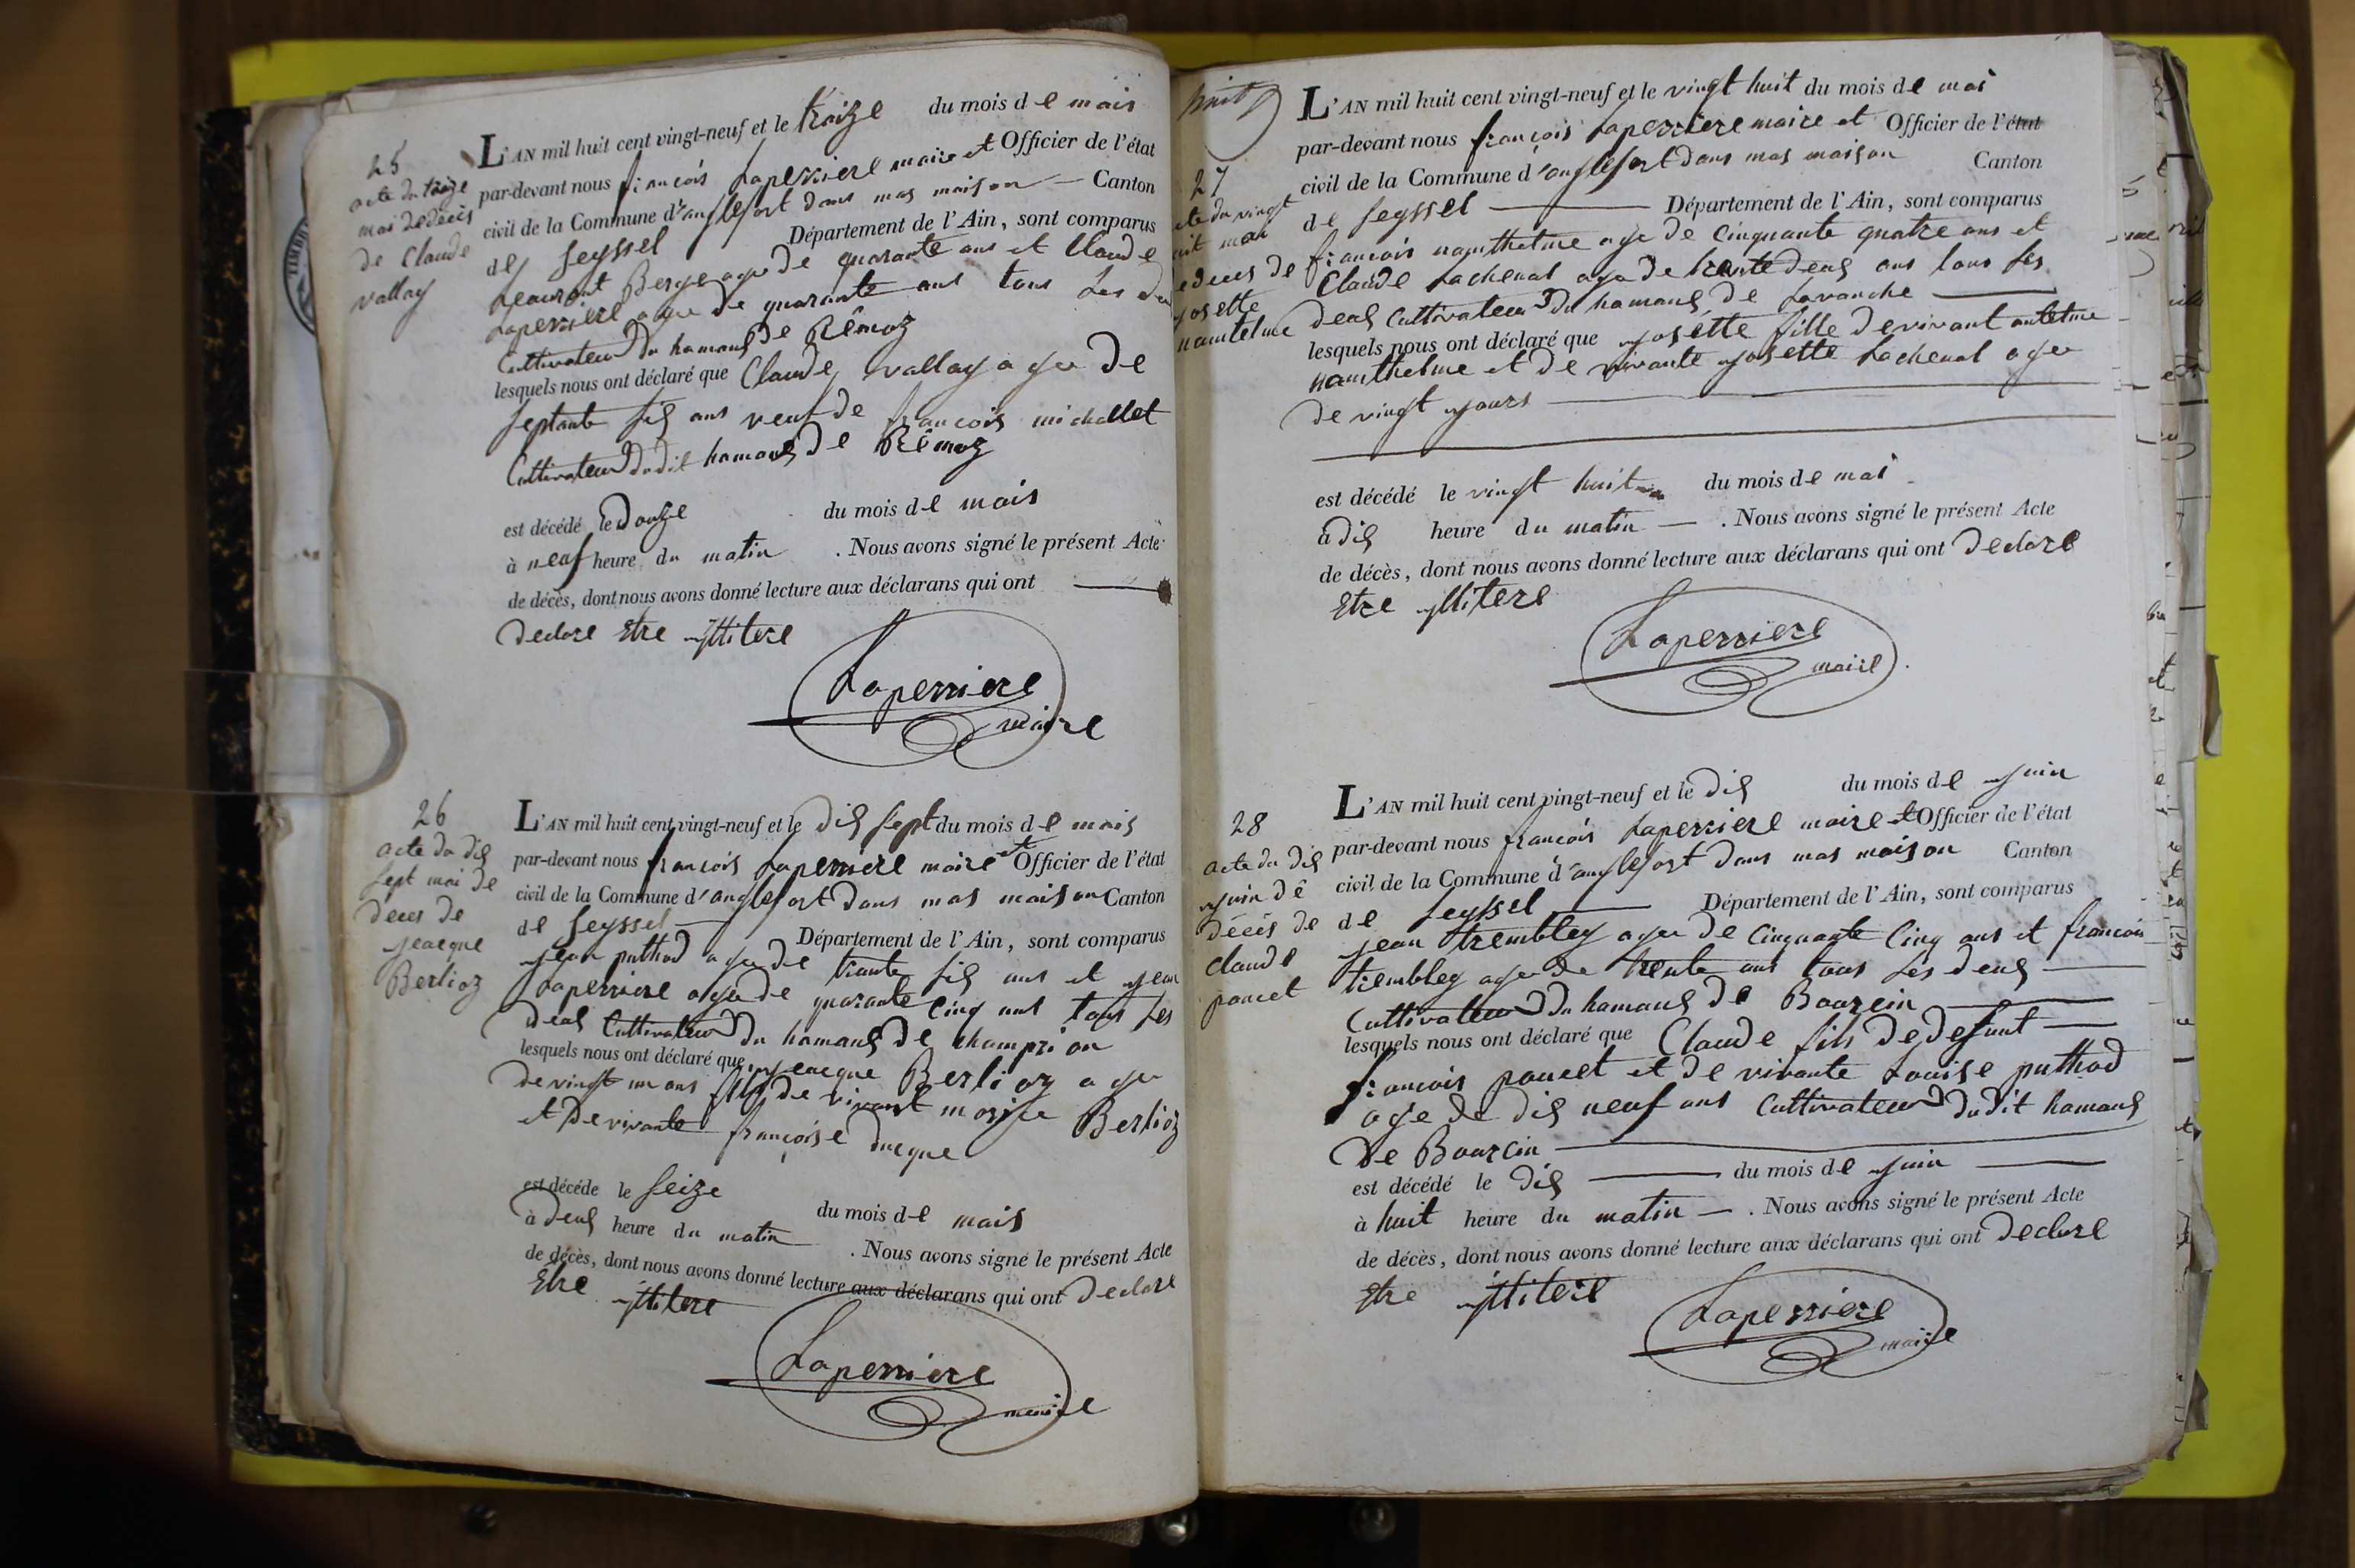 25
acte du treize
mai de décès
de Claude
vallay
L'AN mil huit cent vingt-neuf et le treize du mois de mais
par-devant nous françois Laperriere maire et Officier de l'état
civil de la Commune d'anglefort dans mas maison — Canton
de Seyssel Département de l'Ain, sont comparus
Leaurent Berge age de quarante ans et Claude
Laperriere agee de quarante ans tous Les
Cultivateur du hamaux de Rêmoz
lesquels nous ont déclaré que Claude vallay agee de
septante six ans veuf de francois michallet
Cultivateur dudit hamaux de Rêmoz
est décédé le Douze du mois de mais
à neuf heure du matin . Nous avons signé le présent Acte
de décès, dont nous avons donné lecture aux déclarans qui ont
Declare Etre yllitere
Laperriere
maire
26
acte du dix
sept mai de
deces de
jeacque
Berlioz
L'AN mil huit cent vingt-neuf et le dix sept du mois de mais
par-devant nous françois Laperriere maire et Officier de l'état
civil de la Commune d'anglefort Dans mas maison Canton
de Seyssel — Département de l'Ain, sont comparus
jean puthod agee de trante six ans et jean
Laperriere agee de quarante Cinq ans tous Les
deux Cultivateur du hamaux de Champrion
lesquels nous ont déclaré que jeacque Berlioz agee
de vingt un ans fils de vivant Berlioz
et De vivante françoise ducque
est décédé le seize du mois de mais
à deux heure du matin . Nous avons signé le présent Acte
de décès, dont nous avons donné lecture aux déclarans qui ont Declare
Etre yllitere
Laperriere
maire
huit
27
acte du vingt
huit mai
deces de
josette
namtelme
L'AN mil huit cent vingt-neuf et le vingt huit du mois de mai
par-devant nous françois Laperriere maire et Officier de l'état
civil de la Commune d'anglefort Dans mas maison Canton
de Seyssel — Département de l'Ain, sont comparus
francois namthelme age de Cinquante quatre ans et
Claude Lachenal age de trente deux ans tous Les
deux Cultivateur du hamaux de Lavanche
lesquels nous ont déclaré que josette fille de vivant antelme
namthelme et de vivante josette Lachenal agee
de vingt jours
est décédé le vingt huit du mois de mai
à dix heure du matin — . Nous avons signé le présent Acte
de décès, dont nous avons donné lecture aux déclarans qui ont Declare
Etre yllitere
Laperriere
maire
28
acte du dix
juin de
décès de
claude
poncet
L'AN mil huit cent vingt-neuf et le dix du mois de juin
par-devant nous francois Laperriere maire et Officier de l'état
civil de la Commune d'anglefort Dans mas maison Canton
de Seyssel — Département de l'Ain, sont comparus
jean trembley agee de Cinquante Cinq ans et francois
trembley agee de trente ans tous Les deux
Cultivateur du hamaux de Bourcin
lesquels nous ont déclaré que Claude fils de defunt
francois poncet et de vivante Louise puthod
age de dix neuf ans Cultivateur dudit hamaux
De Bourcin
est décédé le dix du mois de juin
à huit heure du matin — . Nous avons signé le présent Acte
de décès, dont nous avons donné lecture aux déclarans qui ont Declare
Etre yllitere
Laperriere
maire